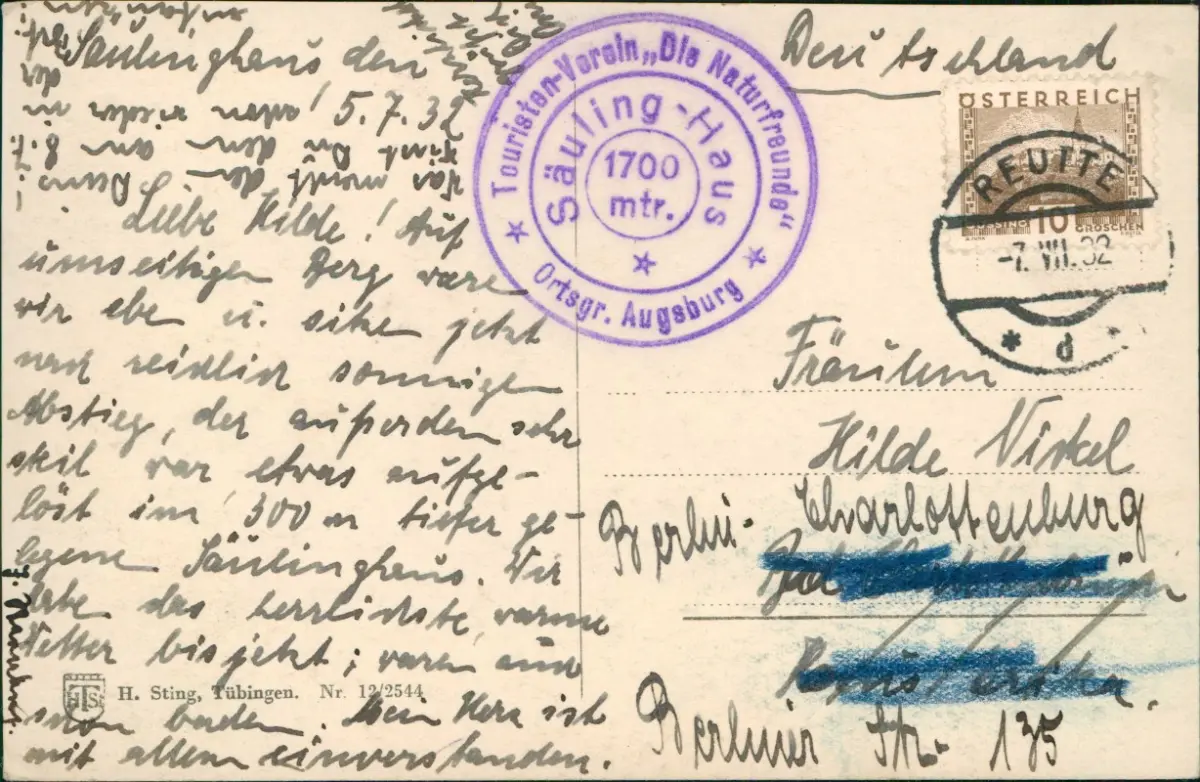 Säulinghaus, den
5.7.32
Liebe Hilde! Auf
umseitigen Berg ware
wir ebe u. sitze jetzt
nach reichlich sonnigem
Abstieg, der außerdem sehr
steil war etwas aufge-
löst im 300 m tiefer ge-
legene Säulinghaus. Wir
habe das herrlichste, warme
Wetter bis jetzt; waren auch
schon baden. Mein Herz ist
mit allem einverstanden.
H. Sting, Tübingen. Nr. 12/2544
HTS
Touristen-Verein „Die Naturfreunde"
Säuling-Haus
1700
mtr.
Ortsgr. Augsburg
Deutschland
ÖSTERREICH
10
GROSCHEN
REUTTE
-7.VII.32
d
Fräulein
Hilde Nickel
Berlin-Charlottenburg
Berliner Str. 135